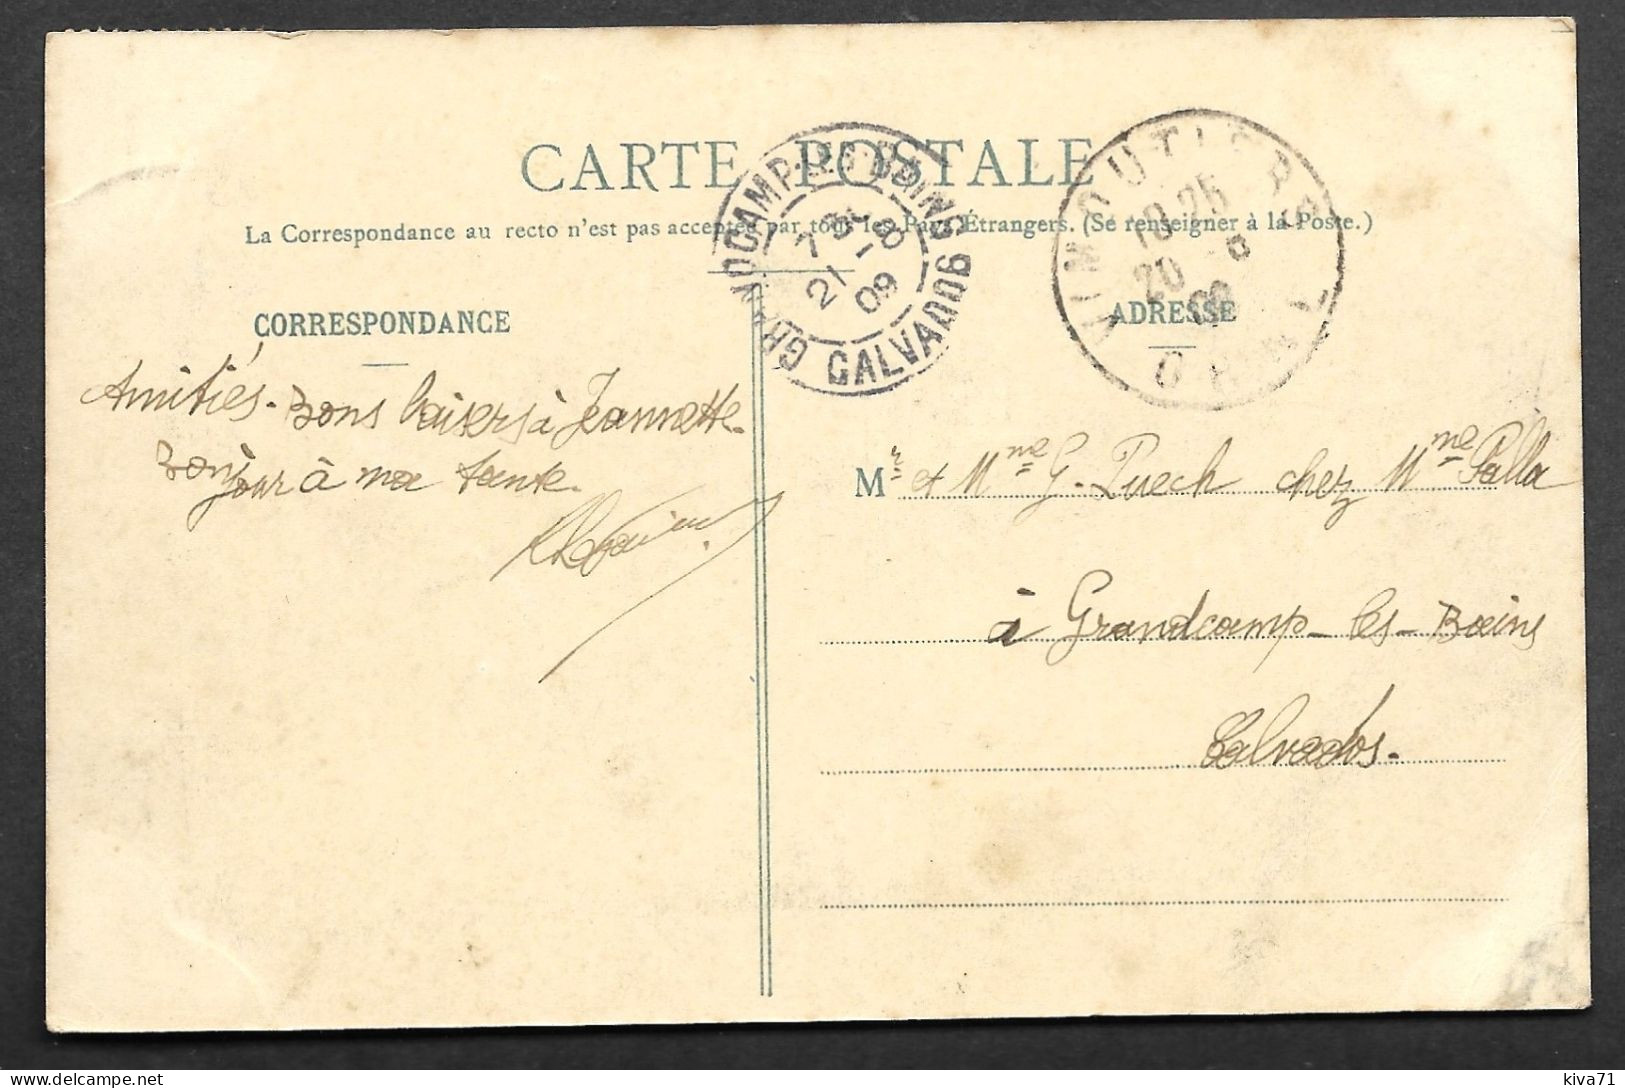 CARTE POSTALE
La Correspondance au recto n'est pas acceptée par tous les Pays Étrangers. (Se renseigner à la Poste.)
GRANDCAMP-LES-BAINS
7 30
21 -8
09
CALVADOS
VIMOUTIERS
10 25
20 8
09
ORNE
CORRESPONDANCE
Amitiés. Bons baisers à Jeannette.
Bonjour à ma tante.
ADRESSE
Mr et Mme G. Puech chez Mme Palla
à Grandcamp-les-Bains
Calvados.
kiva71